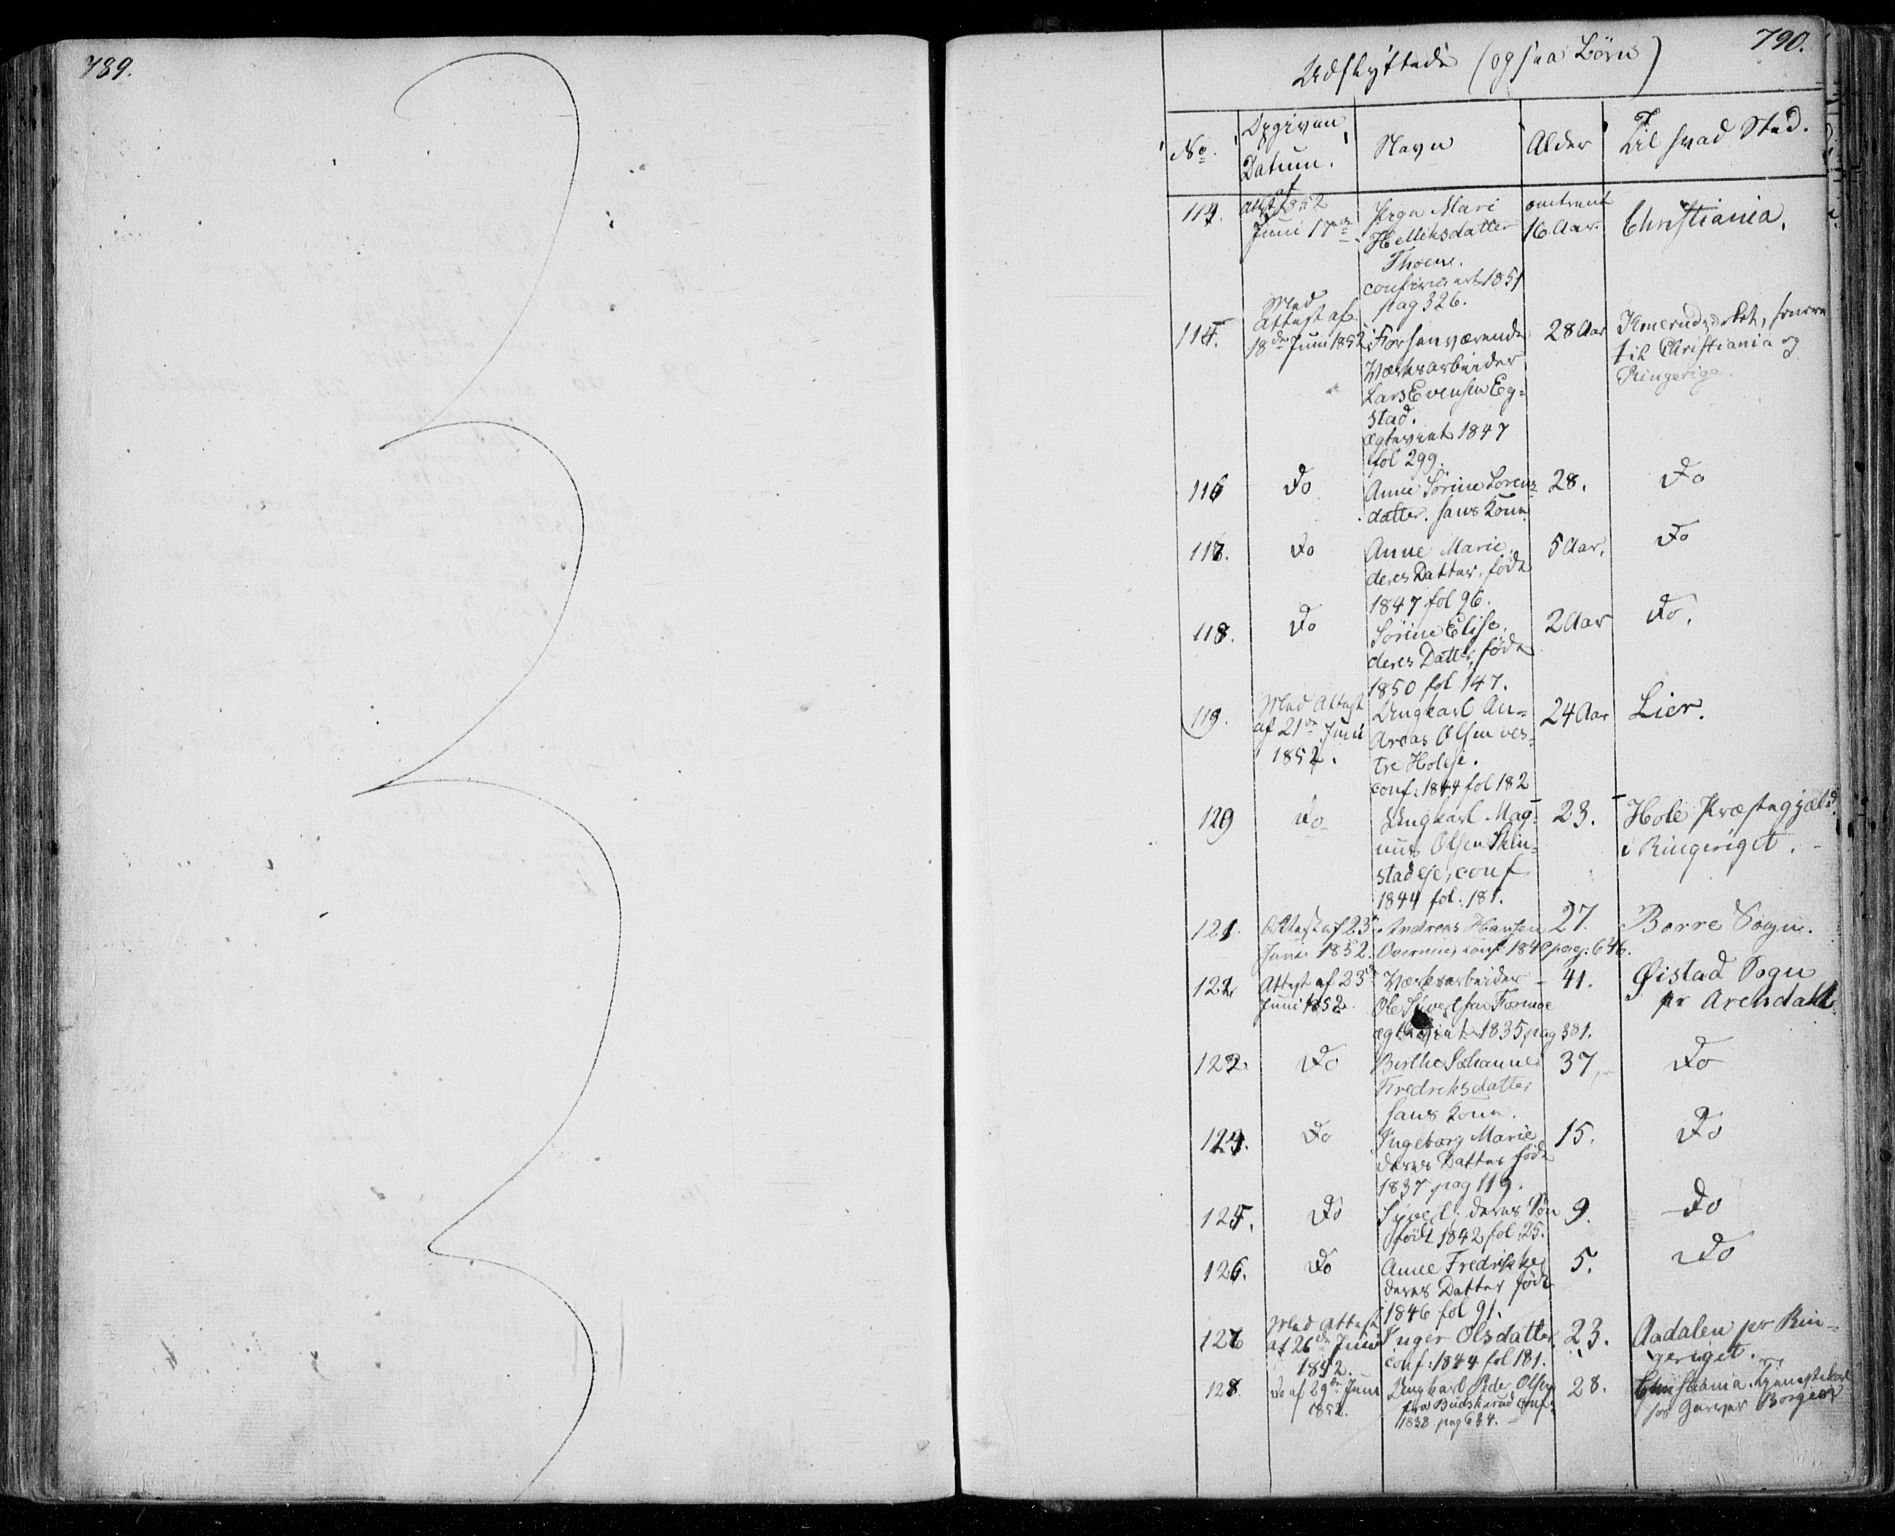 789.
790.
Udflyttede (ogsaa Børn)
No. Opgiven Datum. Navn Alder Til hvad Sted.
114. Attest 1852 Juni 17de
Mari
Helliksdatter
Thoen.
confirmert 1851
pag 326.
omtrent
16 Aar.
Christiania.
115. Med
Attest af
18de Juni 1852
Forhenværende
Værksarbeider
Lars Evensen Eg-
stad.
ægteviet 1847
fol 299.
28 Aar
til Christiania og
Ringerige.
116 Do Anne Sørine Lorenz-
datter. hans Kone 28. Do
117. Do Anne Marie,
deres Datter, født
1847 fol 96. 5 Aar. Do
118. Do Sørine Elise,
deres Datter, født
1850 fol 147. 2 Aar Do.
119. Med Attest
af 21de Juni
1852.
Ungkarl An-
dreas Olsen ves-
tre
conf: 1844 fol 182
24 Aar Lier.
120 Do Ungkarl Mag-
nus Olsen Skin-
stad eje, conf
1844 fol. 181.
23. Hole Præstegjæld
i Ringeriget.
121. Attest af 23de
Juni 1852.
Andreas Hansen
conf 1840 pag: 646.
27. Borre Sogn.
122 Attest af 23de
Juni 1852.
Værksarbeider
Ole Syvertsen
ægteviet 1835 pag 381.
41. Øistad Sogn
pr Arendal
123. Do Berthe Johanne
Fredriksdatter
hans Kone. 37. Do
124. Do Ingeborg Marie
deres Datter født
1837 pag 119. 15. Do
125. Do Syvert, deres Søn
født 1842 fol: 25. 9. Do
126. Do Anne Fredrikke
deres Datter født
1846 fol 91. 5. Do
127 Med Attest
af 26de Juni
1852.
Inger Olsdatter
conf: 1844 fol 181. 23. Aadalen pr Rin-
geriget.
128. Do af 29de Juni
1852.
Ungkarl Peder Olsen
fra Buskerud conf:
1838 pag 634. 28. Christiania. Tjenestekarl
hos Garver